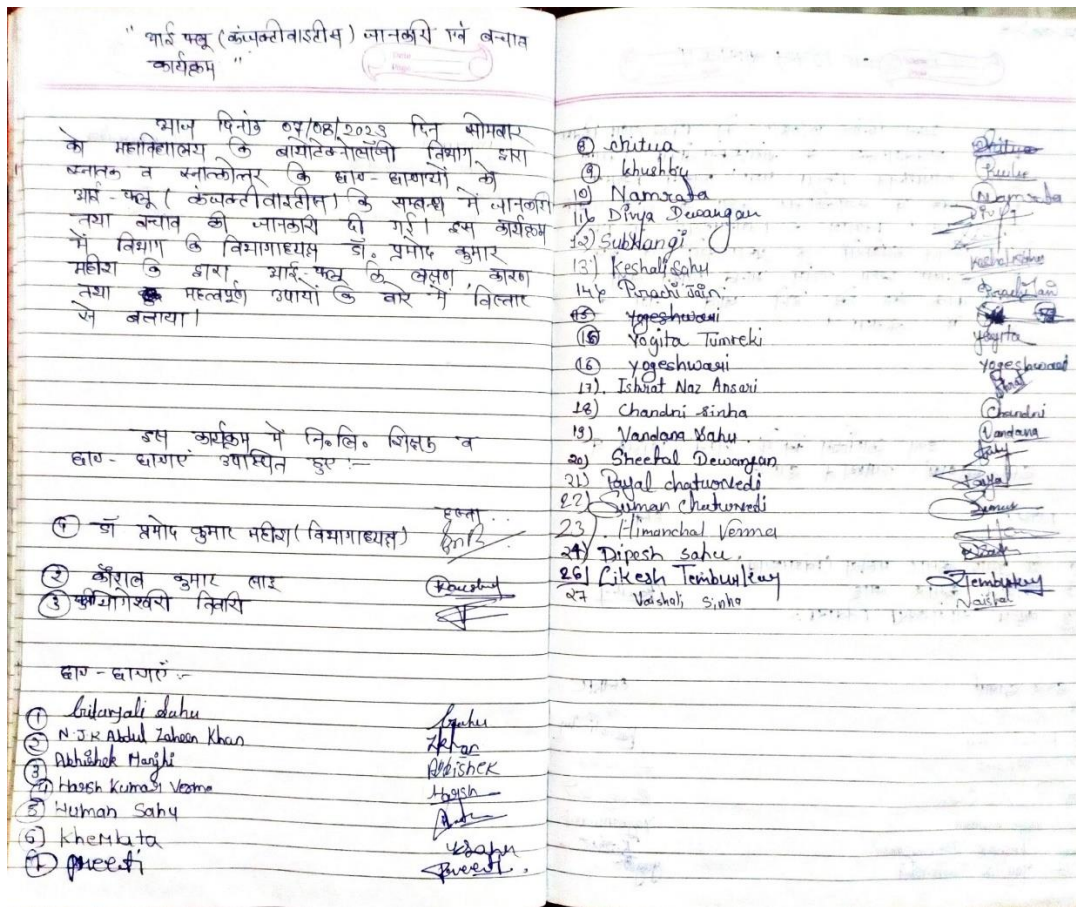 " आई फ्लू (कंजक्टीवाइटीस) जानकारी एवं बचाव
कार्यक्रम "
आज दिनांक 07/08/2023 दिन सोमवार
को महाविद्यालय के बायोटेक्नोलॉजी विभाग द्वारा
स्नातक व स्नात्कोत्तर के छात्र-छात्रायों को
आई-फ्लू (कंजक्टीवाइटीस) के सम्बन्ध में जानकारी
तथा बचाव की जानकारी दी गई। इस कार्यक्रम
में विभाग के विभागाध्यक्ष डॉ. प्रमोद कुमार
महीश के द्वारा आई-फ्लू के लक्षण, कारण
तथा महत्वपूर्ण उपायों के बारे में विस्तार
से बताया।
इस कार्यक्रम में नि०लि० शिक्षक व
छात्र-छात्राएं उपस्थित हुए :-
हस्ता...
① डॉ प्रमोद कुमार महीश (विभागाध्यक्ष)
② कौशल कुमार Kaushal
③ योगेश्वरी तिवारी
छात्र-छात्राएं :-
① Gitanjali Sahu Gsahu
② N.J.K Abdul Zaheen Khan Zkhan
③ Abhishek Manjhi Abhishek
④ Harsh Kumar Verma Harsh
⑤ Human Sahu
⑥ Khemlata Ksahu
⑦ Preeti Preeti.
⑧ Chitua Chitua
⑨ Khushbu
10) Namrata Namrata
11) Divya Dewangan Divya
12) Subhangi
13) Keshali Sahu Keshali Sahu
14) Prachi Jain Prachi Jain
15 Yogeshwari
⑮ Yogita Tumreki Yogita
(16) Yogeshwari Yogeshwari
17). Ishrat Naz Ansari Ishrat
18) Chandni Sinha Chandni
19) Vandana Sahu Vandana
20) Sheetal Dewangan
21) Payal Chaturvedi Payal
22) Suman Chaturvedi Suman
23) Himanchal Verma
24) Dipesh Sahu.
26) Likesh Temburkey Temburkey
27 Vaishali Sinha Vaishali